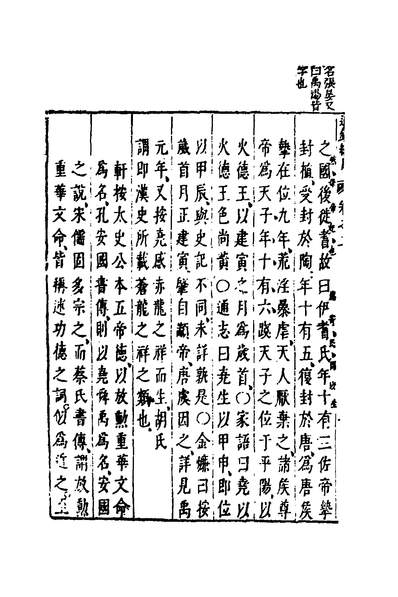 之國後徙耆故曰伊耆氏年十有三佐帝摯
封植受封於陶年十有五復封於唐爲唐侯
摯在位九年荒淫暴虐天人厭棄之諸侯尊
帝爲天子年十有六踐天子之位于平陽以
火德王以建寅之月爲歲首○家語曰堯以
火德王色尚黃○通志曰堯生以甲申即位
以甲辰與史記不同未詳孰是○金燫曰按
歲首月正建寅肇自顓帝唐虞因之詳見禹
元年又按堯感赤龍之祥而生胡氏
謂即漢史所載蒼龍之祥之類也
軒按太史公本五帝德以放勳重華文命
爲名孔安國書傳則以堯舜禹爲名安國
之說宋儒固多宗之而蔡氏書傳謂放勳
重華文命皆稱述功德之詞似爲近之上